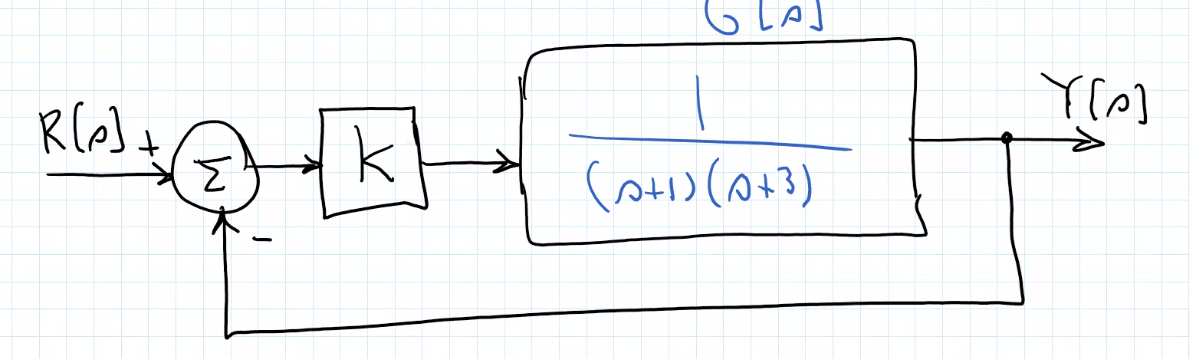 G[s]
R[s] +
Σ
K
1
(s+1)(s+3)
Y[s]
-